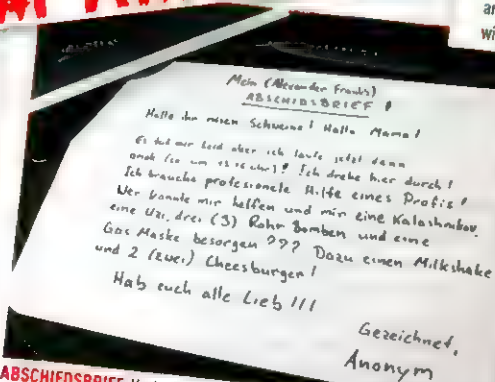 Mein (Alexander Franks)
ABSCHIDSBRIEF !
Hallo ihr miesen Schweine! Hallo Mama!
Es tut mir Leid aber ich laufe jetzt dann
amok (so um 15 15 uhr)! Ich drehe hier durch!
Ich brauche profesionele Hilfe eines Profis!
Wer konnte mir helfen und mir eine Kalashnikov.
eine Uzi, drei (3) Rohr Bomben und eine
Gas Maske besorgen ??? Dazu einen Milkshake
und 2 (zwei) Cheesburger!
Hab euch alle Lieb !!!
Gezeichnet,
Anonym
ABSCHIEDSBRIEF